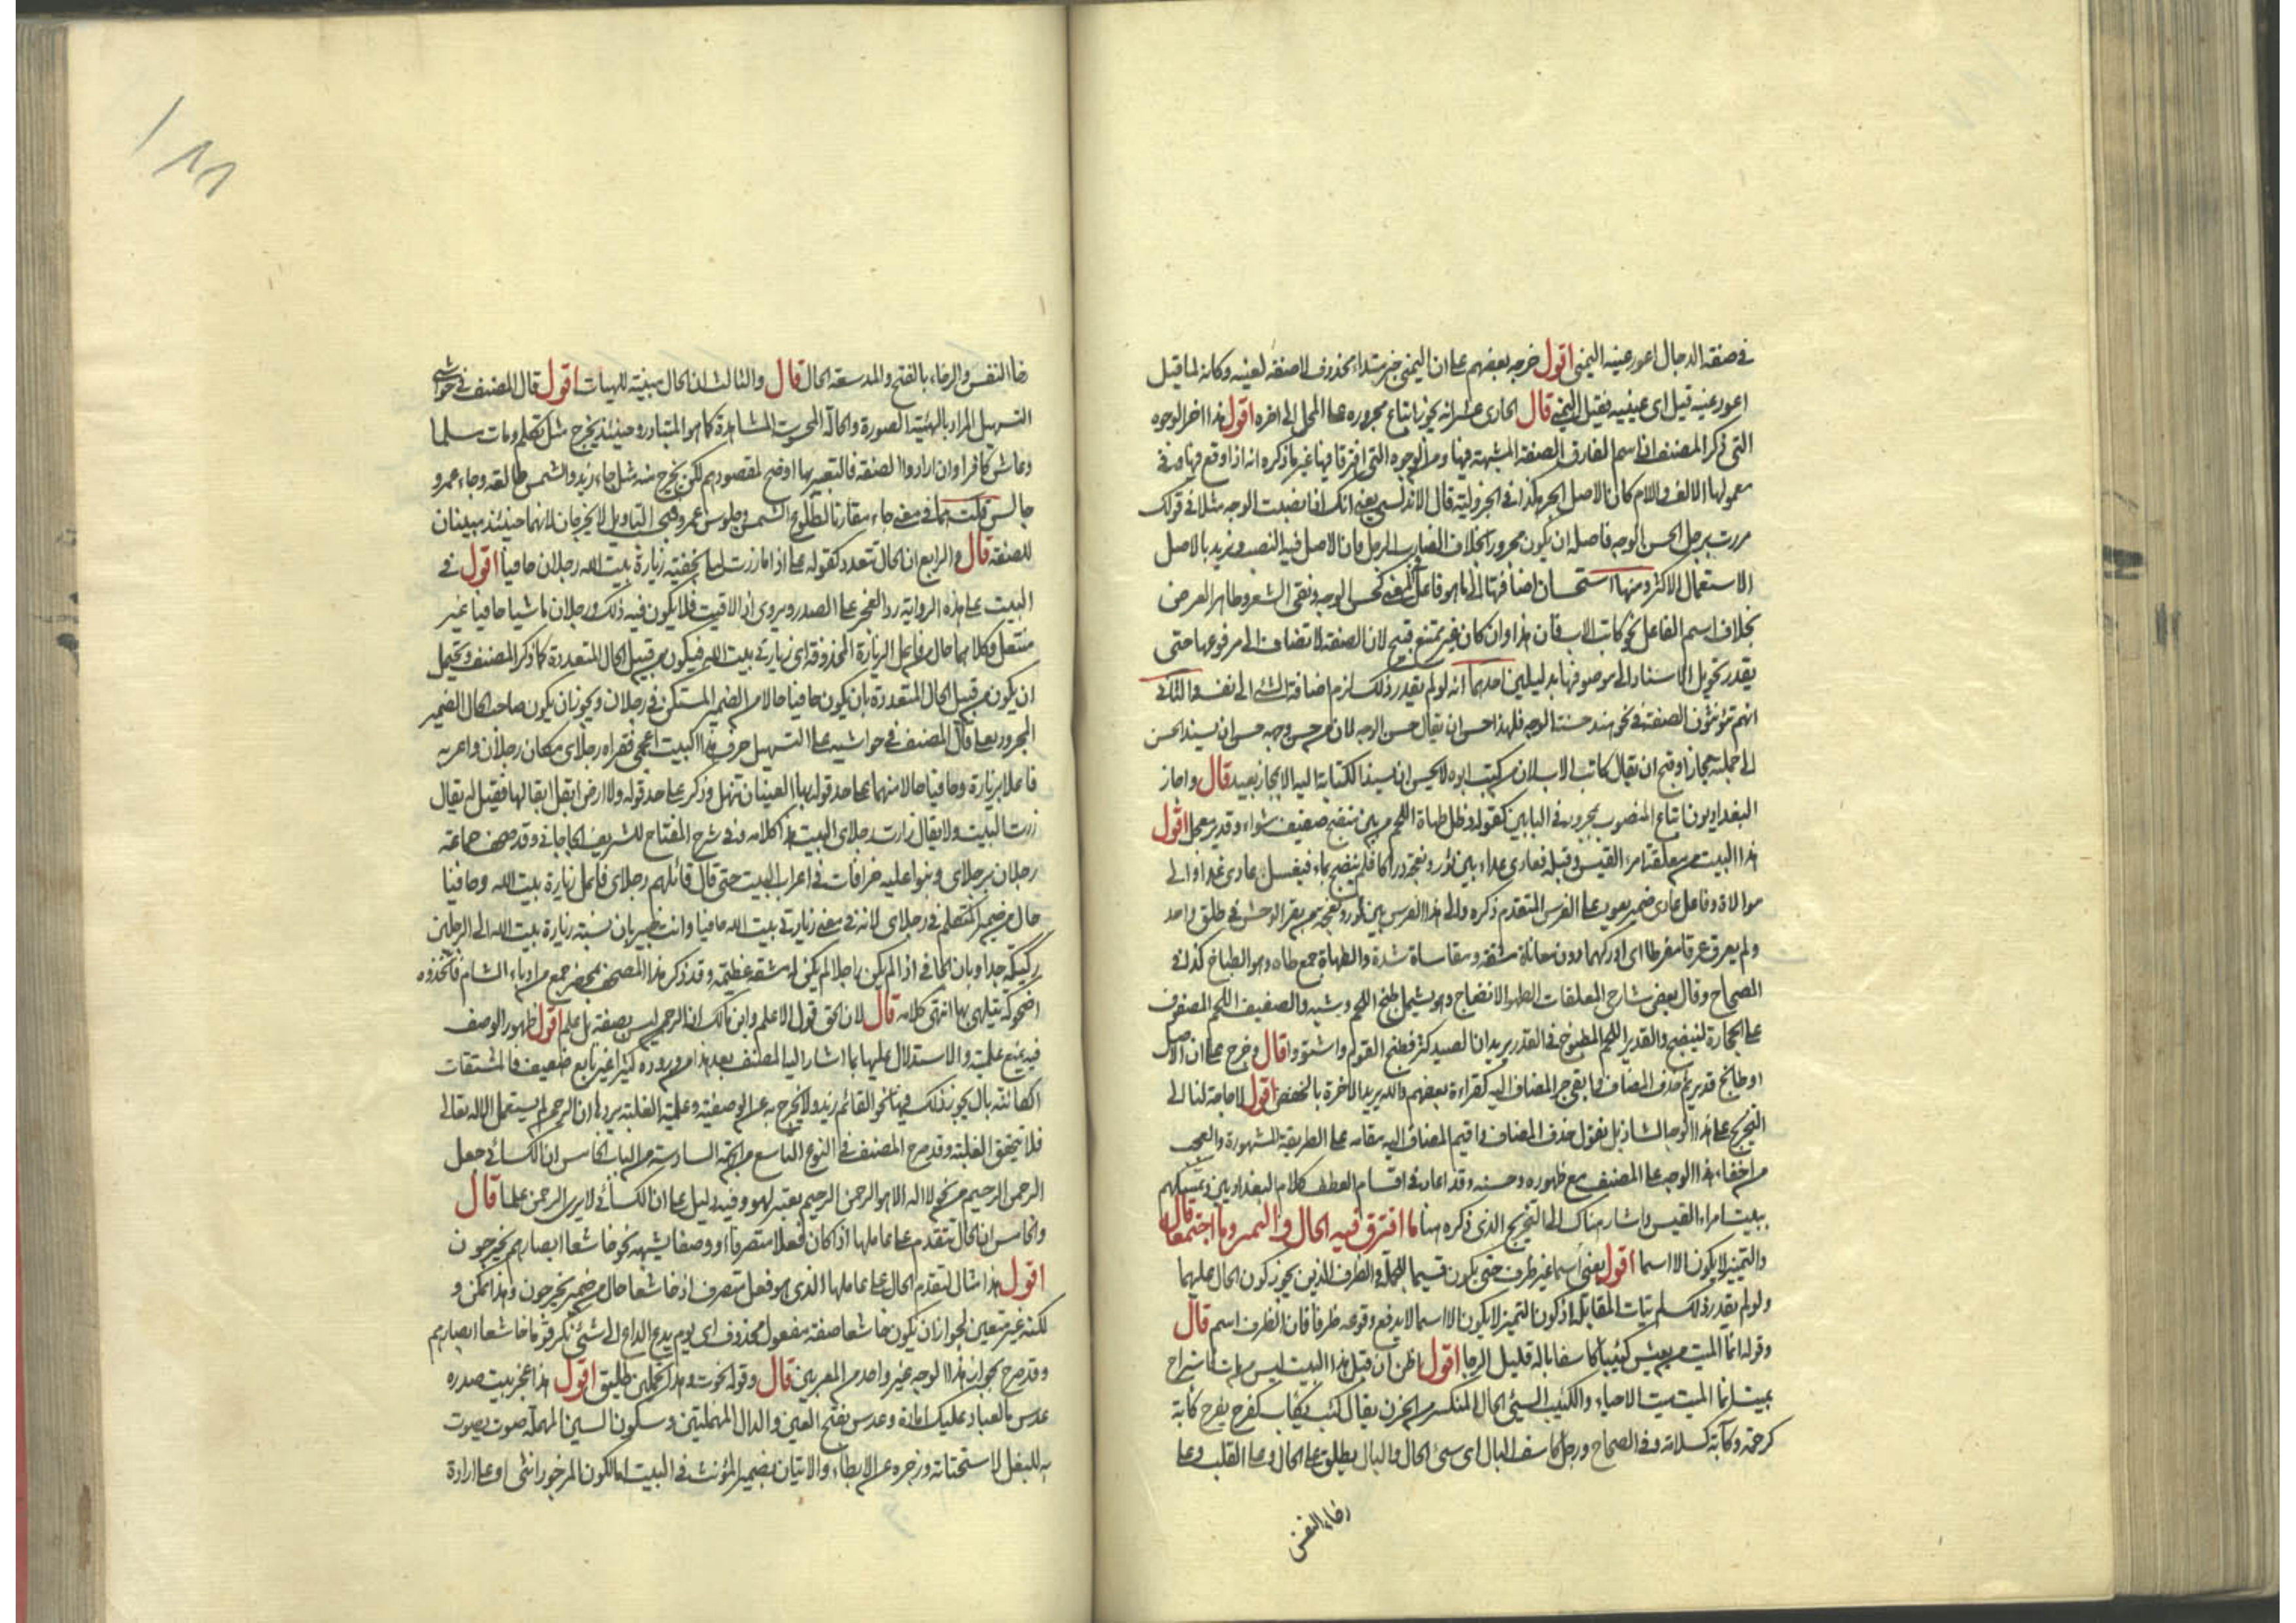 في صفة الدجال اعور عينه اليمنى اقول خرجه بعضهم على ان اليمنى خبر مبتداء محذوف لا صفة لعينه وكانه لما قيل
اعور عينه قيل اى عينيه فقيل اليمنى قال الحادى عشر انه يجوز اتباع مجروره على المحل الى اخره اقول هذا اخر الوجوه
التى ذكر المصنف ان اسم الفارق الصفة المشبهة فيها ومن الوجوه التى افترقا فيها غير ما ذكره انه اذا وقع فيها وفى
معمولها الالف واللام كان الاصل الجر هكذا فى الجزولية قال الاندلسى يعنى انك اذا نصبت الوجه مثلا فى قولك
مررت برجل الحسن الوجه فاصله ان يكون مجرورا بخلاف الضارب الرجل فان الاصل فيه النصب ونريد بالاصل
الاستعمال الاكثر ومنها استحسان اضافتها الى ما هو فاعل فى المعنى كحسن الوجه ونقى الشعر وطاهر العرض
بخلاف اسم الفاعل نحو كاتب الاب فان هذا وان كان غير ممتنع قبيح لان الصفة لا تضاف الى مرفوعها حتى
يقدر تحويل الاسناد الى موصوفها بدليلين احدهما انه لو لم يقدر ذلك لزم اضافة الشئ الى نفسه والثانى
انهم يؤنثون الصفة فى نحو هند حسنة الوجه فلهذا حسن ان يقال حسن الوجه لان من حسن وجهه حسن ان يسند الحسن
الى جملته مجازا وقبح ان يقال كاتب الاب لان من كتب ابوه لا يحسن ان يسند الكتابة اليه الا بمجاز بعيد قال واجاز
البغداديون اتباع المنصوب بمجرور فى البابين كقوله فظل طهاة اللحم من بين منضج صفيف شواء وقدير معجل اقول
هذا البيت من معلقة امرء القيس وقبله فعادى عداء بين ثور ونعجة دراكا فلم ينضح بماء فيغسل عادى عداء والى
موالاة وفاعل عادى ضمير يعود على الفرس المتقدم ذكره والى هذا الفرس بين ثور ونعجة من بقر الوحش فى طلق واحد
ولم يعرق عرقا مفرطا اى ادركهما دون معاناة مشقة ومقاساة شدة والطهاة جمع طاه وهو الطباخ كذا فى
الصحاح وقال بعض شارحى المعلقات الطهو الانضاج وهو يشمل طبخ اللحم وشيه والصفيف اللحم المصفوف
على الحجارة لينضج والقدير اللحم المطبوخ فى القدر يريد ان الصيد كثر فطبخ القوم واشتووا قال وخرج على ان الاصل
او طابخ قدير ثم حذف المضاف فابقى جر المضاف اليه كقراءة بعضهم والله يريد الاخرة بالخفض اقول لا حاجة لنا الى
التخريج على هذا الوجه الشاذ بل نقول حذف المضاف واقيم المضاف اليه مقامه على الطريقة المشهورة والعجب
من خفاء هذا الوجه على المصنف مع ظهوره وحسنه وقد اعاد فى اقسام العطف كلام البغداديين وتمسكهم
ببيت امرء القيس واشار هناك الى التخريج الذى ذكره هنا ما افترق فيه الحال والتمييز وما اجتمعا قال
والتمييز لا يكون الا اسما اقول يعنى اسما غير ظرف حتى يكون قسيما للجملة والظرف اللذين يجوز كون الحال عليهما
ولو لم يقدر ذلك لم يتات المقابلة اذ كون التمييز لا يكون الا اسما لا يدفع وقوعه ظرفا فان الظرف اسم قال
وقوله انما الميت من يعيش كئيبا كاسفا باله قليل الرجا اقول اظن ان قبل هذا البيت ليس من مات فاستراح
بميت انما الميت ميت الاحياء والكئيب السيئ الحال المنكسر من الحزن يقال كئب يكئب كفرح يفرح كآبة
كرحمة وكآبة كسلامة وفى الصحاح ورجل كاسف البال اى سئ الحال والبال يطلق على الحال وعلى القلب وعلى
رخاء النفس
١٨٨
رخا النفس والرخاء بالفتح والمد سعة الحال قال والثالث ان الحال مبينة للهيات اقول قال المصنف فى حواشى
التسهيل المراد بالهيئة الصورة والحالة المحسوسة المشاهدة كما هو المتبادر وحينئذ يخرج مثل تكلم ومات مسلما
وعاش كافرا وان ارادوا الصفة فالتعبير بها اوضح لمقصودهم لكن يخرج منه مثل جاء زيد والشمس طالعة وجاء عمرو
جالس قلت هما فى معنى جاء مقارنا لطلوع الشمس وجلوس عمرو وبهذا التاويل لا يخرجان لانهما حينئذ مبينان
للصفة قال والرابع ان الحال تتعدد كقوله على اذا ما زرت ليلى بخفية زيارة بيت الله رجلان حافيا اقول فى
البيت على هذه الرواية رد العجز على الصدر ويروى اذا لاقيت فلا يكون فيه ذلك ورجلان ماشيا حافيا غير
منتعل وكلاهما حال من فاعل الزيارة المحذوفة اى زيارتى بيت الله فيكون من قبيل الحال المتعددة كما ذكر المصنف ويحتمل
ان يكون من قبيل الحال المتعددة بان يكون حافيا حالا من الضمير المستكن فى رجلان ويجوز ان يكون صاحب الحال الضمير
المجرور بعلى قال المصنف فى حواشيه على التسهيل حرف هذا البيت اعجمى فقراه رجلاى مكان رجلان واعربه
فاعلا بزيارة وحافيا حالا منهما على حد قوله بها العينان تنهل وذكر على حد قوله ولا ارض ابقل ابقالها فقيل له يقال
زرت البيت ولا يقال زارت رجلاى البيت هذا كلامه وفى شرح المفتاح للشريف الجرجانى وقد صحف جماعة
رجلان برجلاى وبنوا عليه خرافات فى اعراب البيت حتى قال قائلهم رجلاى فاعل زيارة بيت الله وحافيا
حال من ضمير المتكلم فى رجلاى لانه فى معنى زيارتى بيت الله حافيا وانت خبير بان نسبة زيارة بيت الله الى الرجلين
ركيكة جدا وبان الحافى اذا لم يكن راجلا لم يكن له مشقة عظيمة وقد ذكر هذا المصحف بمحضر جمع من ادباء الشام فاتخذوه
اضحوكة يتلهى بها انتهى كلامه قال لان الحق قول الاعلم وابن مالك ان الرحمن ليس بصفة بل علم اقول ظهور الوصف
فيه يمنع علميته والاستدلال عليها بما اشار اليه المصنف بعد هذا من وروده كثيرا غير تابع ضعيف فالمشتقات
المقترنة بال يجوز ذلك فيها نحو القائم زيد ولا يخرج به عن الوصفية وعلمية الغلبة يردها ان الرحمن لم يستعمل الا لله تعالى
فلا يتحقق الغلبة وقد صرح المصنف فى النوع التاسع من الجهة السادسة من الباب الخامس ان الكسائى جعل
الرحمن الرحيم من نحو لا اله الا هو الرحمن الرحيم نعتين لهو وفيه دليل على ان الكسائى لا يرى الرحمن علما قال
والخامس ان الحال تتقدم على عاملها اذا كان فعلا متصرفا او وصفا يشبهه نحو خاشعا ابصارهم يخرجون
اقول هذا مثال لتقدم الحال على عاملها الذى هو فعل متصرف اذ خاشعا حال من ضمير يخرجون وهذا ممكن و
لكنه غير متعين لجواز ان يكون خاشعا صفة مفعول محذوف اى يوم يدع الداع الى شئ نكر قوما خاشعا ابصارهم
وقد صرح بجواز هذا الوجه غير واحد من المعربين قال وقوله نجوت وهذا تحملين طليق اقول هذا عجز بيت صدره
عدس ما لعباد عليك امارة وعدس بفتح العين والدال المهملتين وسكون السين المهملة صوت يصوت
به للبغل لاستحثاثه وزجره عن الابطاء والاتيان بضمير المؤنث فى البيت اما لكون المزجور انثى او على ارادة